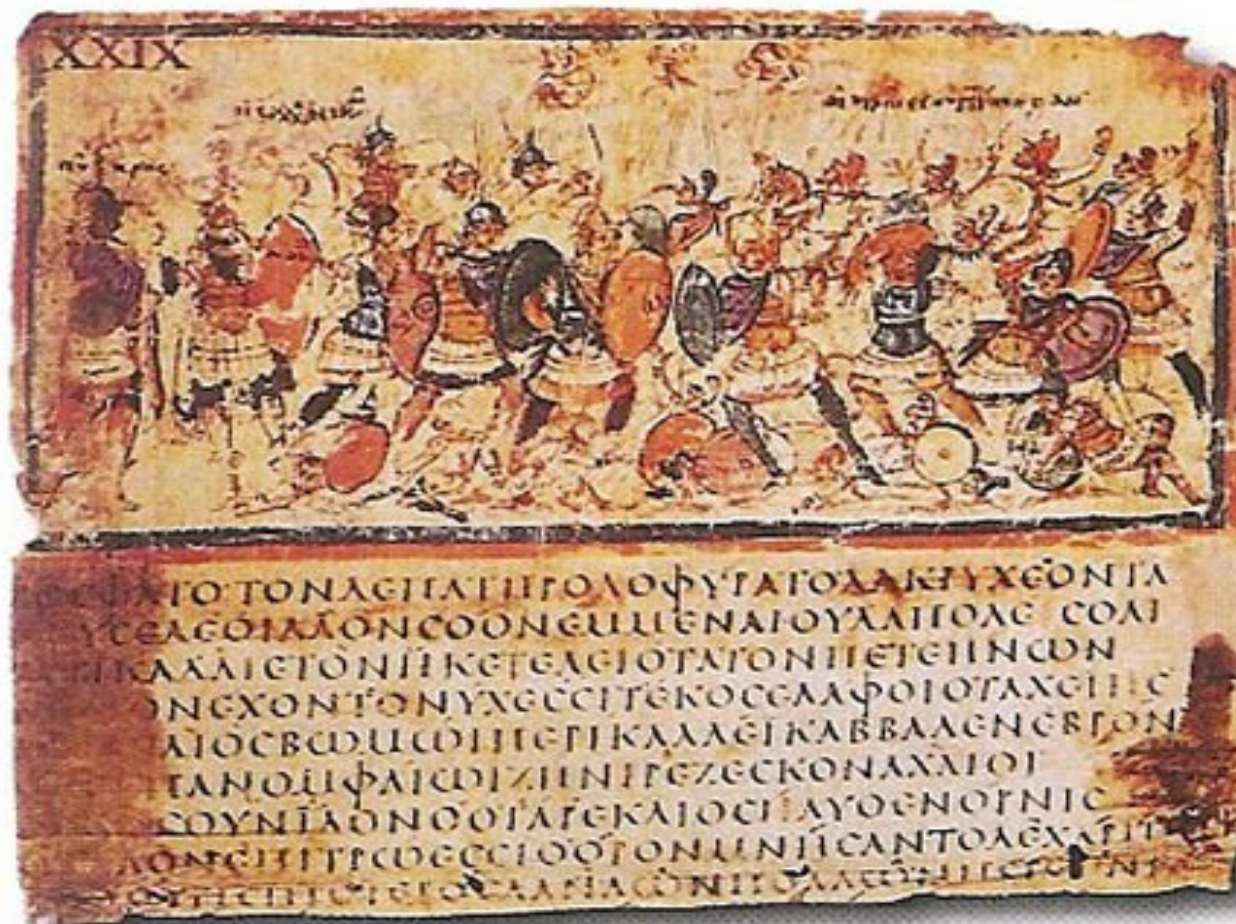 XXIX
ΦΑΤΟΤΟΝΔΕΠΑΤΗΡΟΛΟΦΥΡΑΤΟΔΑΚΡΥΧΕΟΝΤΑ
ΥϹΕΔΕΟΙΛΑΟΝϹΟΟΝΕΜΜΕΝΑΙΟΥΔΑΠΟΛΕϹΘΑΙ
ΤΙΚΑΔΑΙΕΤΟΝΗΚΕΤΕΛΕΙΟΤΑΤΟΝΠΕΤΕΗΝΩΝ
ΟΝΕΧΟΝΤΟΝΥΧΕϹϹΙΤΕΚΟϹΕΛΑΦΟΙΟΤΑΧΕΙΗϹ
ΔΙΟϹΒΩΜΩΙΠΕΡΙΚΑΛΛΕΙΚΑΒΒΑΛΕΝΕΒΡΟΝ
ΠΑΝΟΜΦΑΙΩΙΖΗΝΙΡΕΖΕϹΚΟΝΑΧΑΙΟΙ
ϹΟΥΝΪΔΟΝΘΟΤΑΡΕΚΔΙΟϹΗΛΥΘΕΝΟΡΝΙϹ
ΛΟΝΕΠΙΤΡΩΕϹϹΙΘΟΡΟΝΜΝΗϹΑΝΤΟΔΕΧΑΡ
ΟΥΤΙϹΠΡΟΤΕΡΟϹΔΑΝΑΩΝΠΟΛΛΩΝΠΕΡ